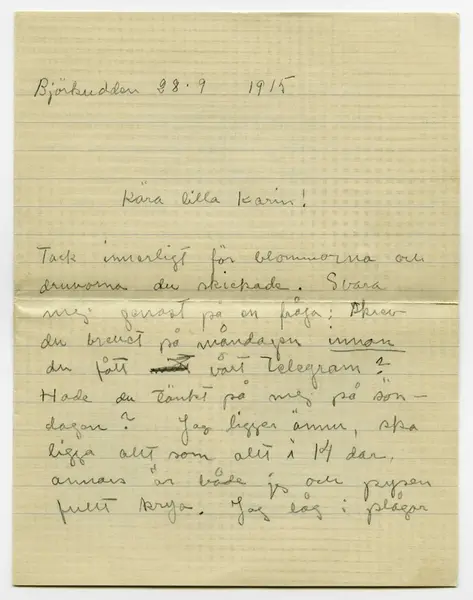 Björkudden 28.9 1915
Kära lilla Karin!
Tack innerligt för blommorna och
druvorna du skickade. Svara
mej genast på en fråga; skrev
du brevet på måndagen innan
du fått vårt telegram?
Hade du tänkt på mej på sön-
dagen? Jag ligger ännu, ska
ligga allt som allt i 14 dar,
annars är både jej och pysen
fullt krya. Jag låg i plågor